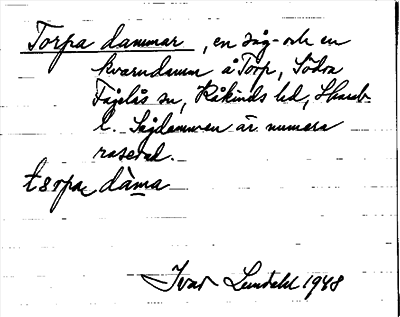 Torpa dammar, en såg- och en
kvarndamm å Torp, Södra
Fågelås sn, Kåkinds hd, Skarab.
l. Sågdammen är numera
raserad.
tsrpa dàma
Ivar Lundahl 1948